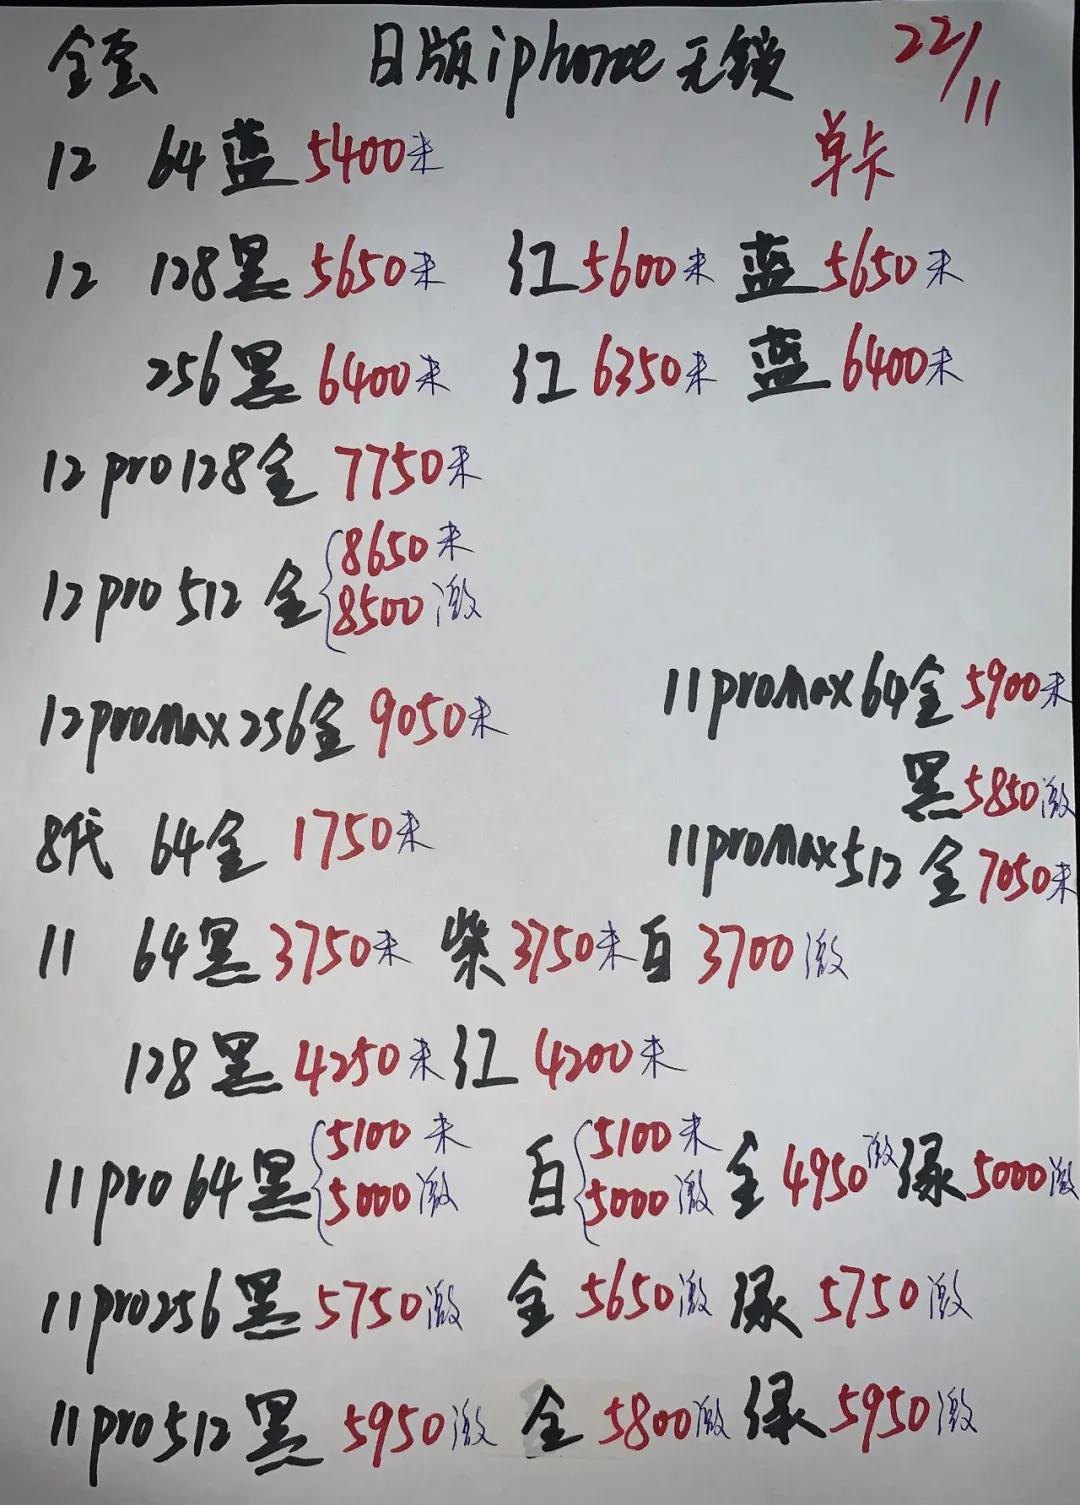 全套 日版iphone无锁 22/11
单卡
12 64蓝5400未
12 128黑5650未 红5600未 蓝5650未
256黑6400未 红6350未 蓝6400未
12pro128金 7750未
12pro 512 金 8650未
8500激
12promax256金 9050未
11promax64金5900未
黑5850激
8代 64金 1750未
11promax512 金7050未
11 64黑3750未 柴3750未 白3700激
128黑4250未 红4200未
11pro64黑 5100未 白 5100未 金4950激 绿5000激
5000激 5000激
11pro256黑5750激 金5650激 绿5750激
11pro512黑5950激 金5800激 绿5950激